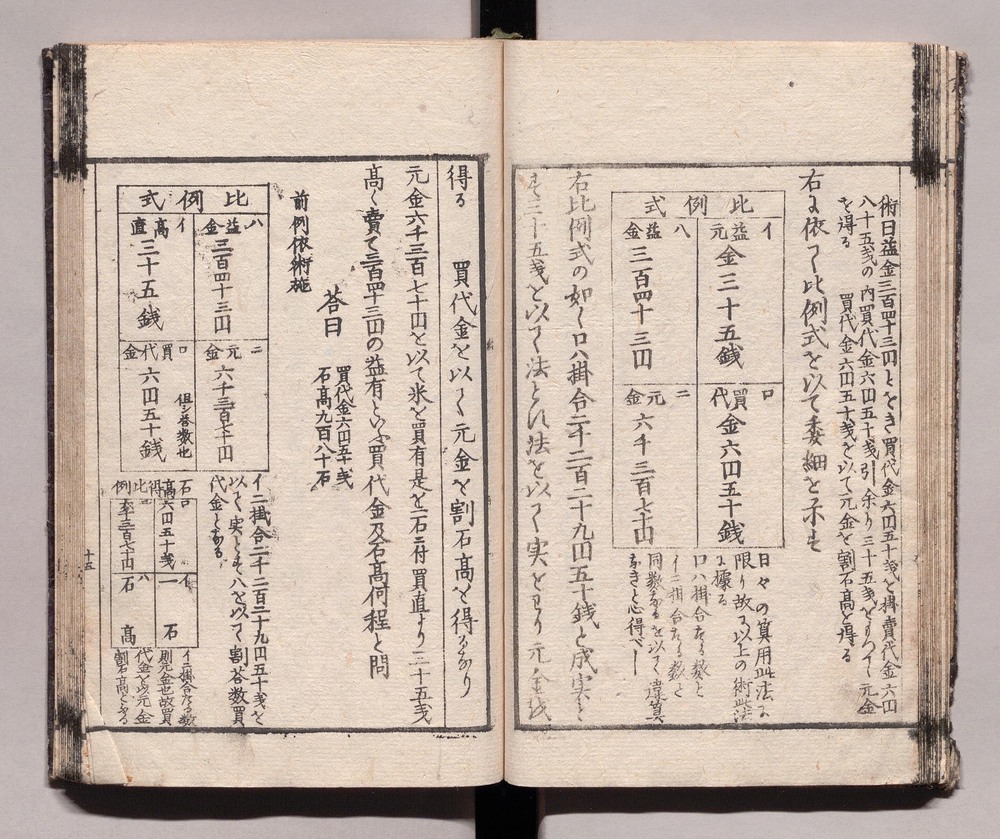 術曰益金三百四十三円とをき買代金六円五十戋と掛賣代金六円
八十五戋の内買代金六円五十戋引余り三十五戋をもつて元金
を得る　買代金六円五十戋を以て元金を割石高を得る
右に依て比例式を以て委細を示す
比例式
イ益元
金三十五銭
ロ買代
金六円五十銭
ハ益金
三百四十三円
ニ元金
六千三百七十円
日々の算用此法に
限り故に以上の術此法
に據る
ロハ掛合たる数と
イニ掛合たる数と
同数なるを以て違算
なきと心得べし
右比例式の如くロハ掛合二千二百二十九円五十銭と成実とし
三十五戋を以て法とし法を以て実をわり元金
得る　買代金を以て元金を割石高を得るなり
元金六千三百七十円を以て米を買有是を一石ニ付買直より三十五戋
高く賣て三百四十三円の益有といふ買代金及石高何程と問
答曰
買代金六円五十戋
石高九百八十石
前例依術施
比例式
ハ益金
三百四十三円
ニ元金
六千三百七十円
イ高直
三十五銭
ロ買代金
六円五十銭
但シ答数也
イニ掛合二千二百二十九円五十戋を
以て実としハを以て割答数買
代金となる
石高得比例
ロ
六円五十戋
イ
一石
ニ
六千三百七十円
ハ
石高
イニ掛合たる数
則元金也故買
代金を以元金
割石高となる
十五